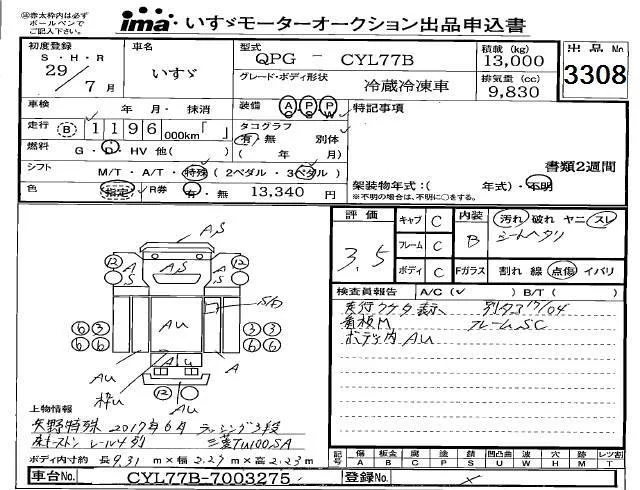 ㊟赤太枠内は必ず
ボールペンで
ご記入下さい。
ima いすゞモーターオークション出品申込書
初度登録 S・H・R 29/7月
車名 いすゞ
型式 QPG － CYL77B
積載 (kg) 13,000
グレード・ボディ形状 冷蔵冷凍車
排気量 (cc) 9,830
出品No 3308
車検 年 月・抹消
装備 AC PS PW
特記事項
走行 B 1196 000km「 」
タコグラフ 有・無 別体
( 年 月)
燃料 G・D・HV 他( )
書類2週間
シフト M/T・A/T・特殊(2ペダル・3ペダル)
架装物年式:( 年式)・不明
※不明の場合は、不明に○をする。
色 指定 R券 有・無 13,340 円
評価 3.5
キャブ C
フレーム C
ボディ C
内装 B
汚れ 破れ ヤニ スレ
シートヘタリ
Fガラス 割れ 線 点傷 イバリ
検査員報告 A/C(✓) B/T( )
別タコ17/04
看板M フレームSC
ボディ内AU
A,S
12 A S A S 12
S
AU
6 3 3 6
6 6 6 6
AU AU A
枠U
12
AU
上物情報
矢野特殊 2017年6月 ラッシング3段
床キーストン レール4列 三菱TU100SA
ボディ内寸約 長9.31 m×幅2.27m×高2.23m
記号 傷A 板金B 腐C 塗P 錆S 凹凸曲U 波W 穴H 跡M レツ割T
車台No. CYL77B-7003275
登録No. ×